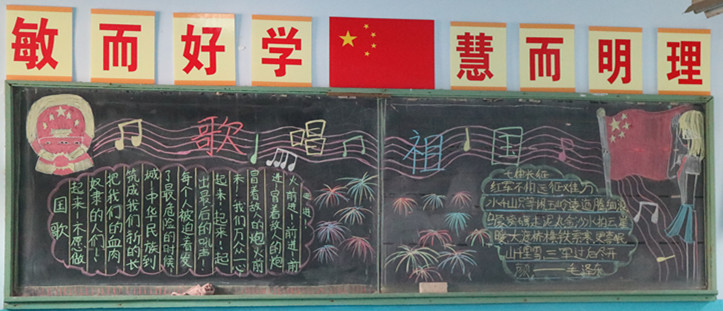 敏而好学 慧而明理
歌唱祖国
国歌
起来！不愿做
奴隶的人们！
把我们的血肉
筑成我们新的长
城！中华民族到
了最危险的时候
每个人被迫着发
出最后的吼声！
起来！起来！起
来！我们万众一心
冒着敌人的炮火前
进！冒着敌人的炮
火前进！前进！前
进！进！
七律长征
红军不怕远征难 万
水千山只等闲 五岭逶迤腾细浪
乌蒙磅礴走泥丸 金沙水拍云崖
暖 大渡桥横铁索寒 更喜岷
山千里雪 三军过后尽开
颜 ——毛泽东